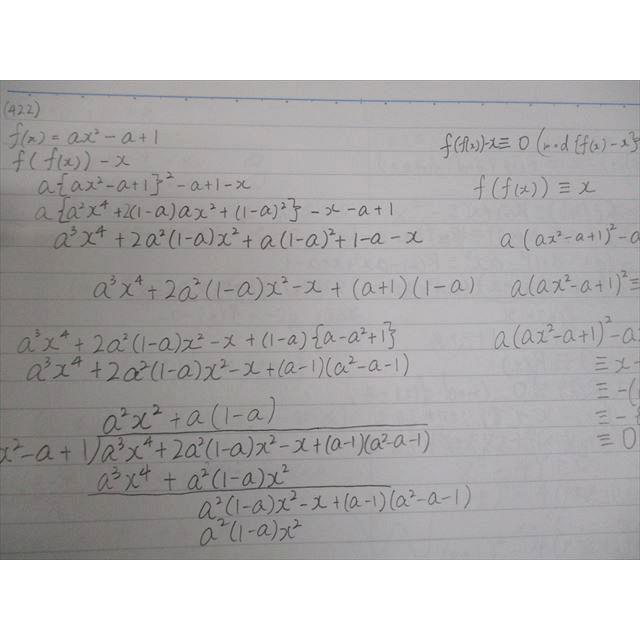 (422)
f(x) = ax² - a + 1
f(f(x)) - x
a{ax² - a + 1}² - a + 1 - x
a{a²x⁴ + 2(1-a)ax² + (1-a)²} - x - a + 1
a³x⁴ + 2a²(1-a)x² + a(1-a)² + 1 - a - x
a³x⁴ + 2a²(1-a)x² - x + (a+1)(1-a)
a³x⁴ + 2a²(1-a)x² - x + (1-a){a-a²+1}
a³x⁴ + 2a²(1-a)x² - x + (a-1)(a²-a-1)
a²x² + a(1-a)
x² - a + 1)a³x⁴ + 2a²(1-a)x² - x + (a-1)(a²-a-1)
a³x⁴ + a²(1-a)x²
a²(1-a)x² - x + (a-1)(a²-a-1)
a²(1-a)x²
f(f(x))-x ≡ 0 (mod {f(x)-x}
f(f(x)) ≡ x
a(ax²-a+1)² - a
a(ax²-a+1)² ≡
a(ax²-a+1)² - a
≡ x -
≡ -(
≡ -
≡ 0